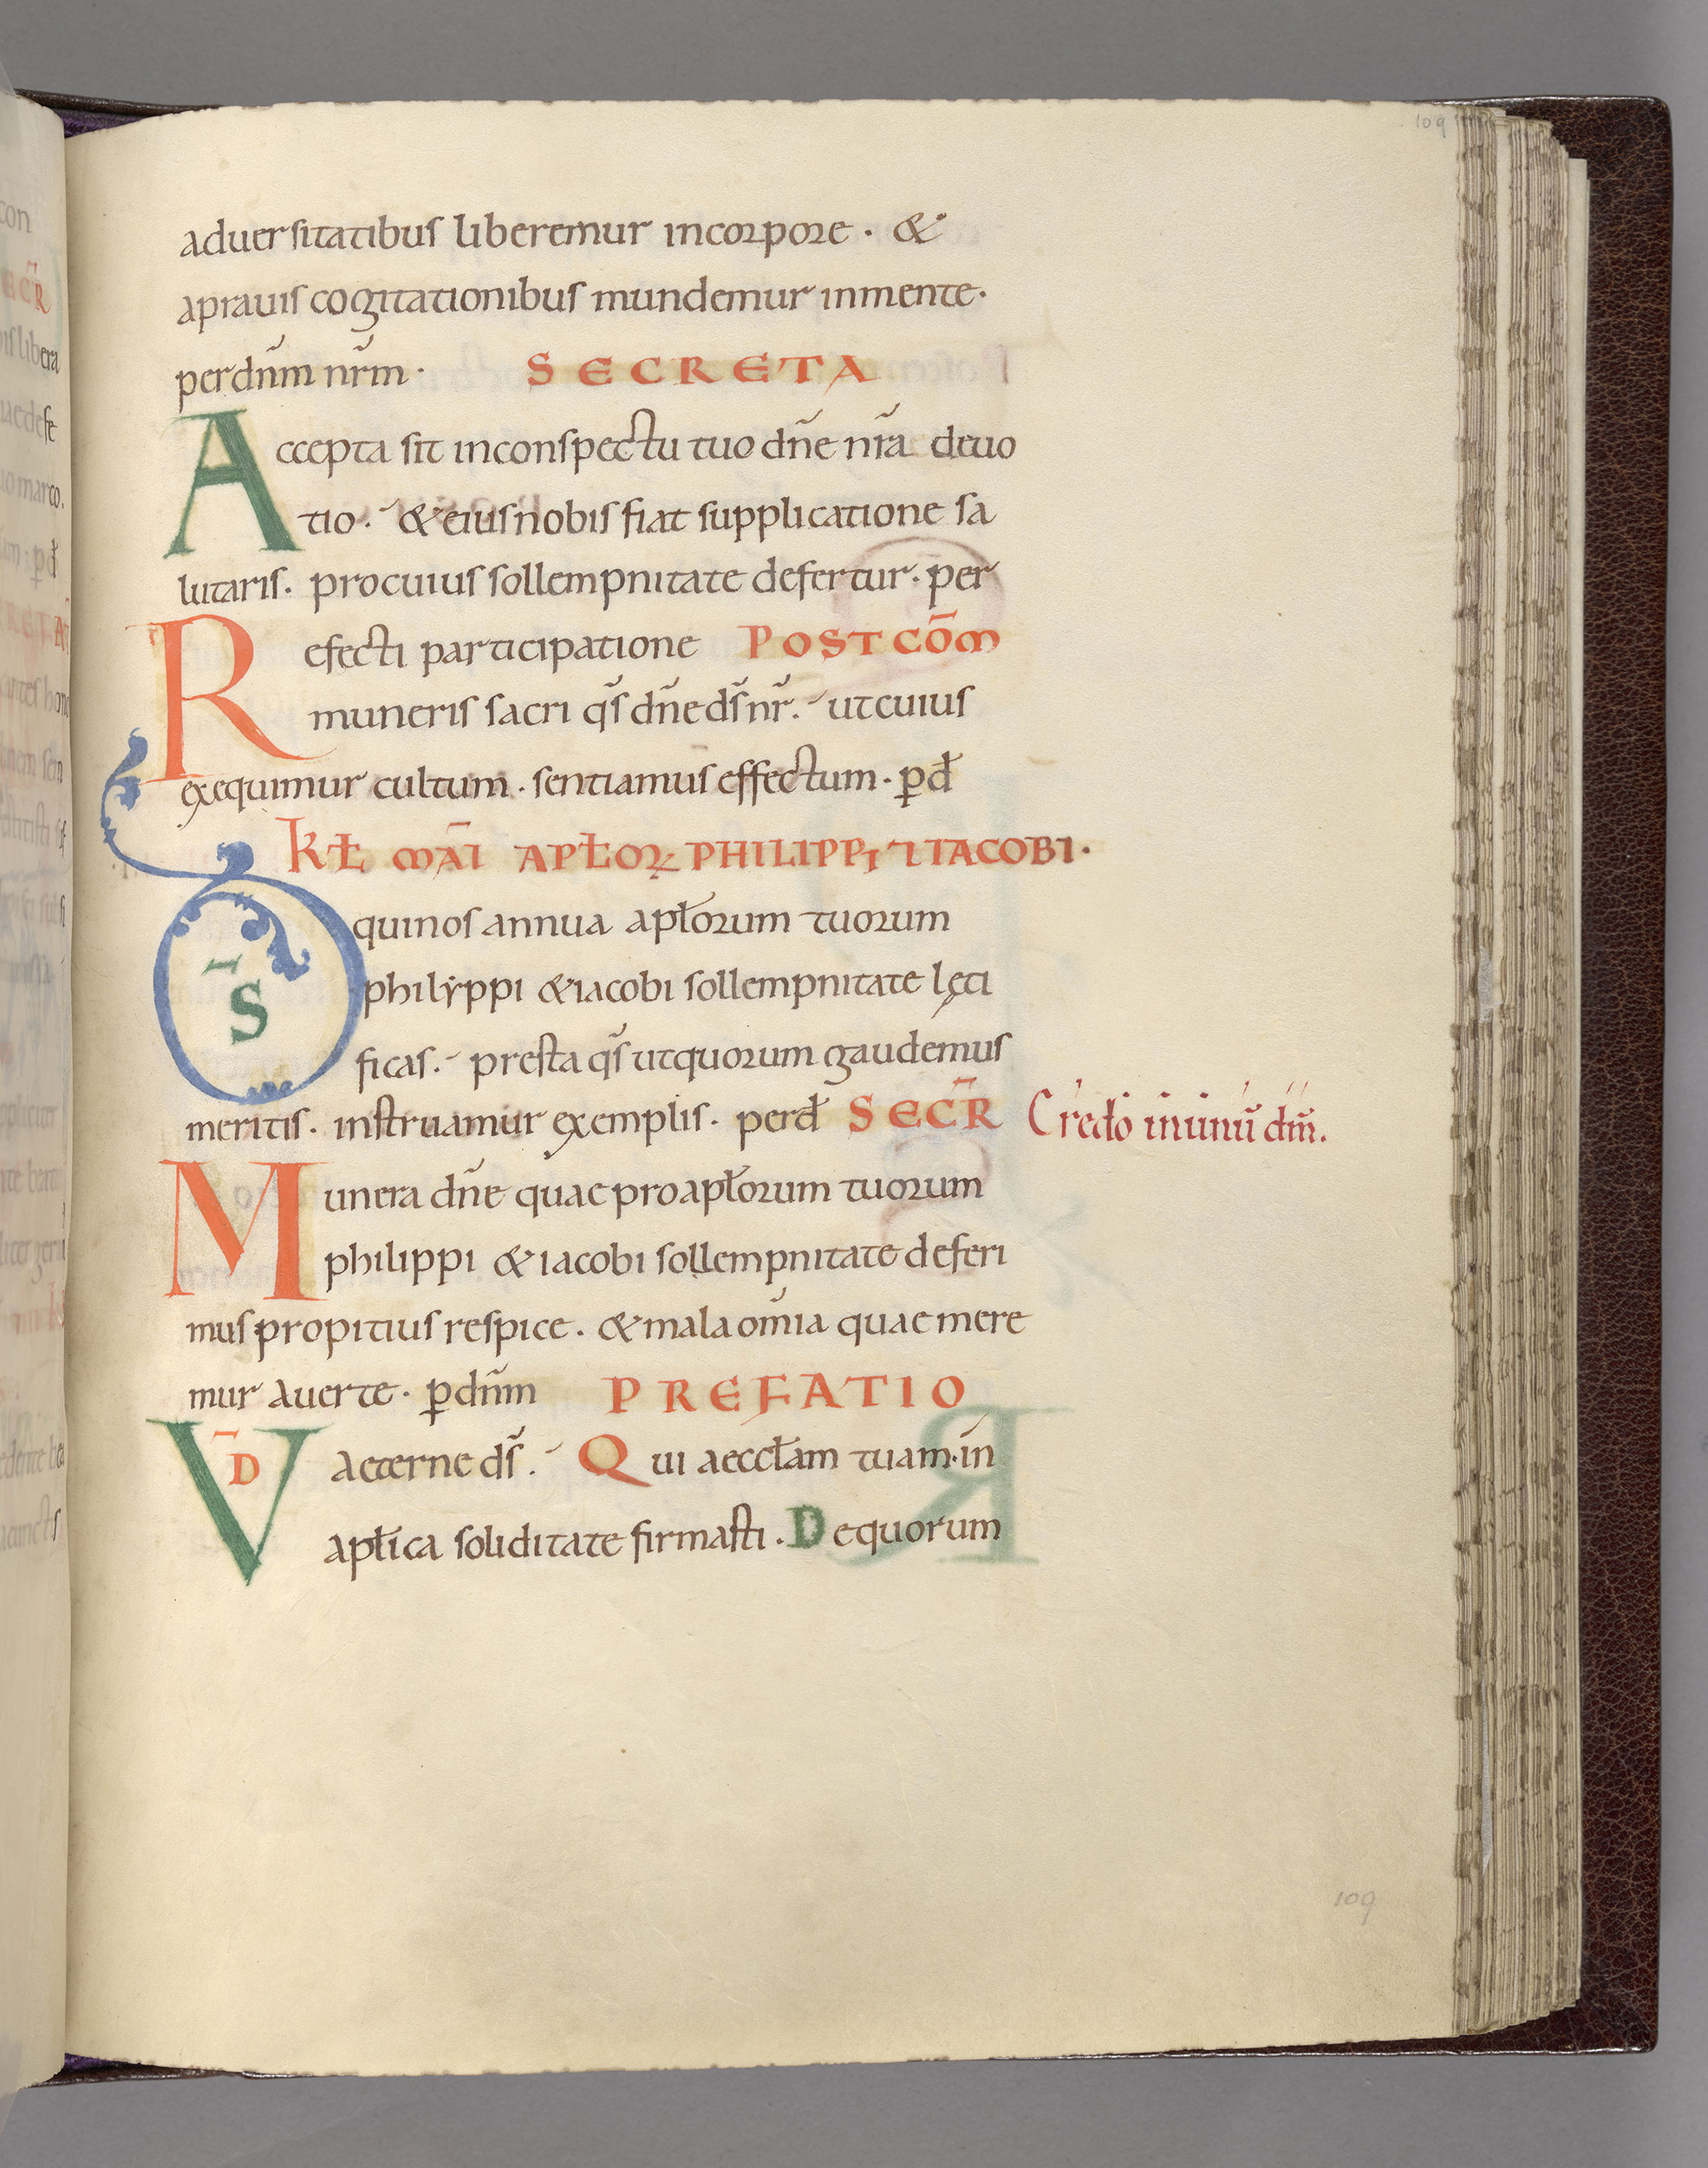 109
aduersitatibus liberemur incorpore · &
aprauis cogitationibus mundemur inmente·
perdn̄m nr̄m · SECRETA
Accepta sit inconspectu tuo dn̄e nr̄a deuo
tio · & eius nobis fiat supplicatione sa
lutaris · procuius sollempnitate defertur · per
Refecti participatione POST COM̄
muneris sacri qs̄ dn̄e ds̄ nr̄ · ut cuius
exequimur cultum · sentiamus effectum · ꝑ dł
KŁ MAĪ APŁOꝜ PHILIPPI ⁊ IACOBI ·
Ds̄ qui nos annua apłorum tuorum
philyppi & iacobi sollempnitate lęti
ficas · presta qs̄ ut quorum gaudemus
meritis · instruamur exemplis · per dł SECR̄ Credo in unū dm̄.
Munera dn̄e quae pro apłorum tuorum
philippi & iacobi sollempnitate deferi
mus propitius respice · & mala om̄ia quae mere
mur auerte · ꝑ dn̄m PREFATIO
VD̄ aeterne ds̄ · Qui aeccłam tuam · in̄
apłica soliditate firmasti · De quorum
109